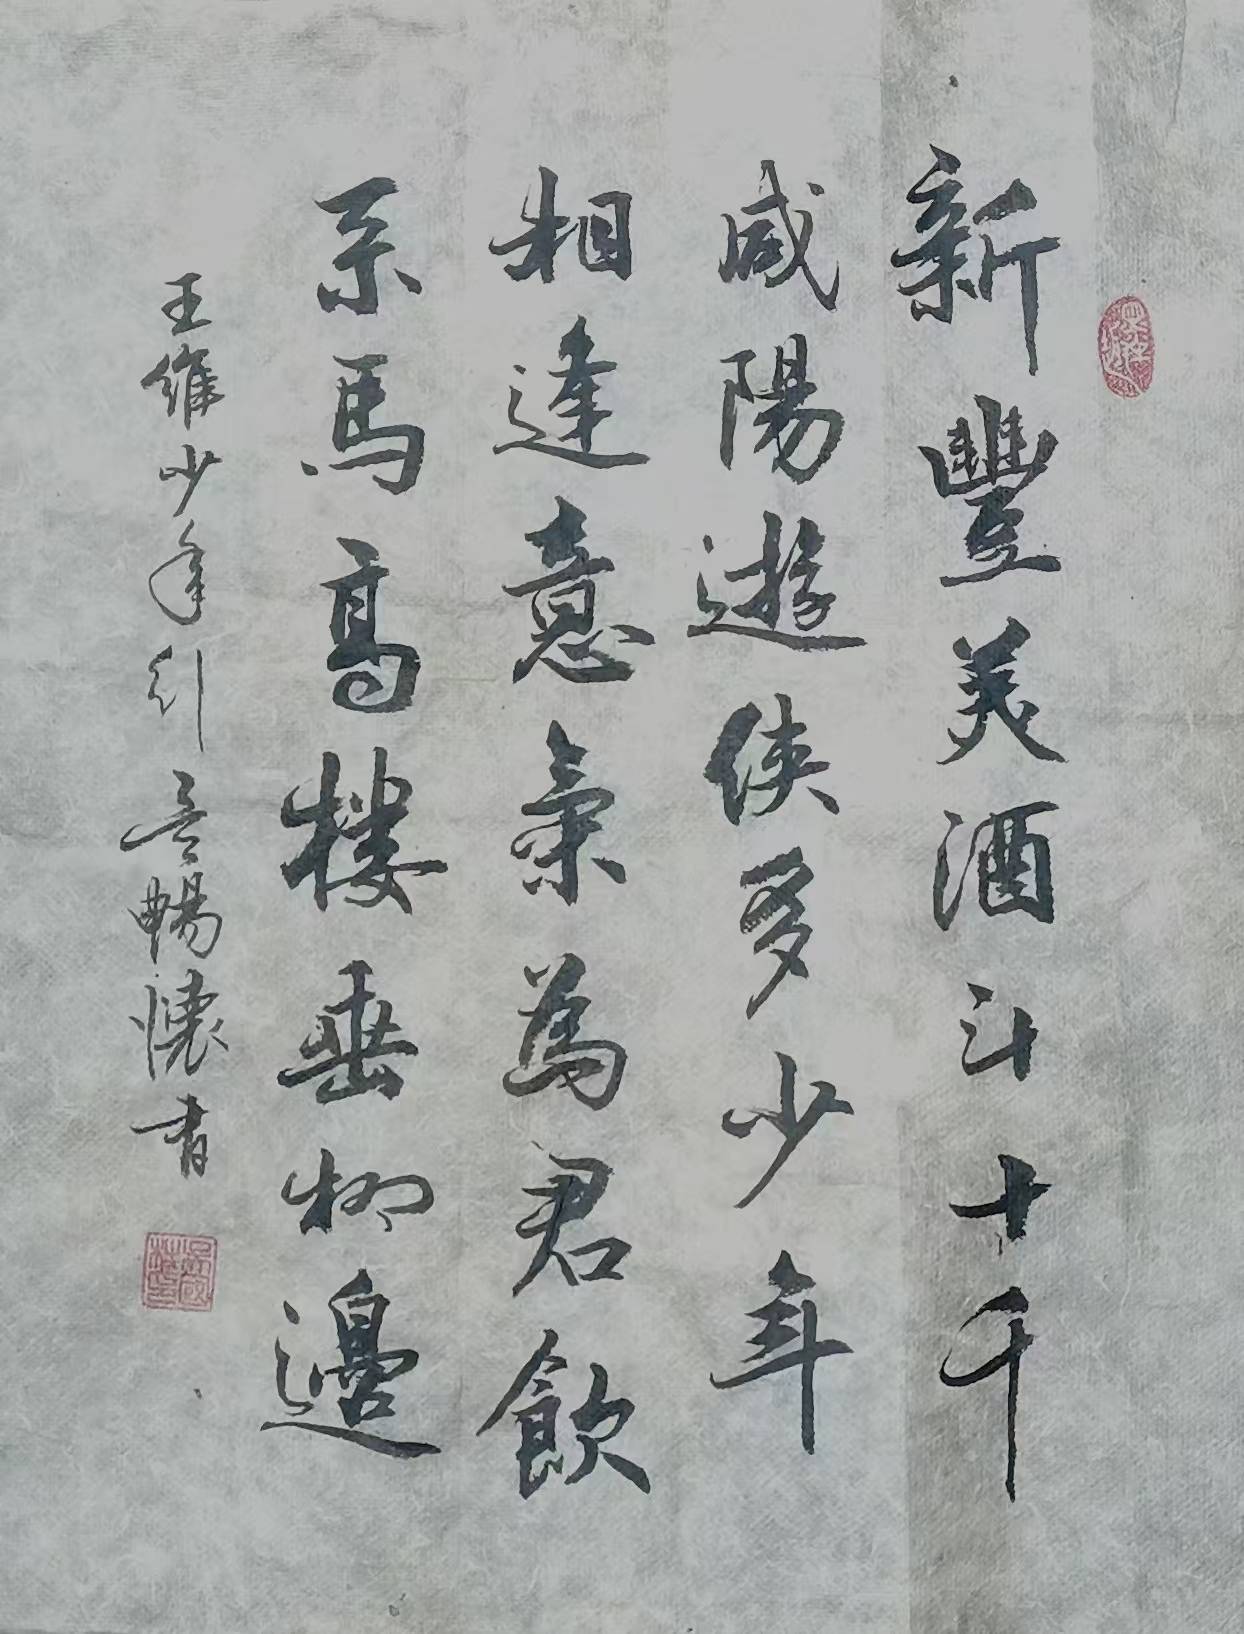 新豐美酒斗十千
咸陽遊俠多少年
相逢意氣為君飲
系馬高樓垂柳邊
王維少年行 吳暢懷書